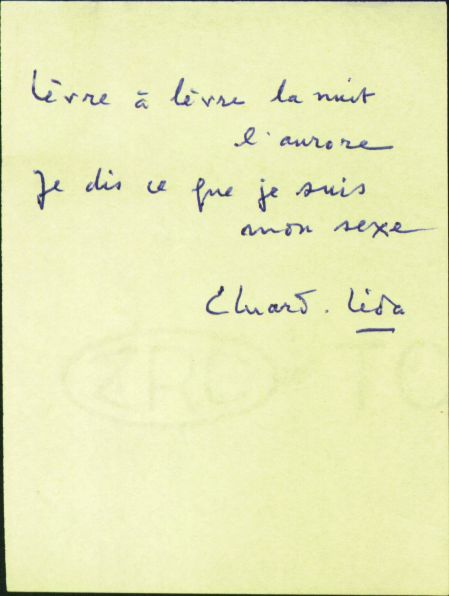 Lèvre à lèvre la nuit
l'aurore
Je dis ce que je suis
mon sexe
Eluard. Léda
ERC TO